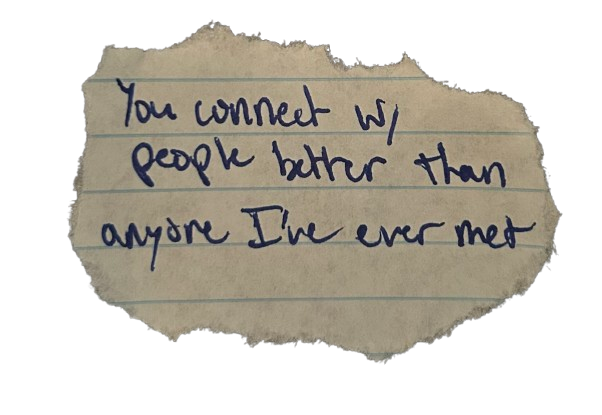 You connect w/
people better than
anyone I've ever met